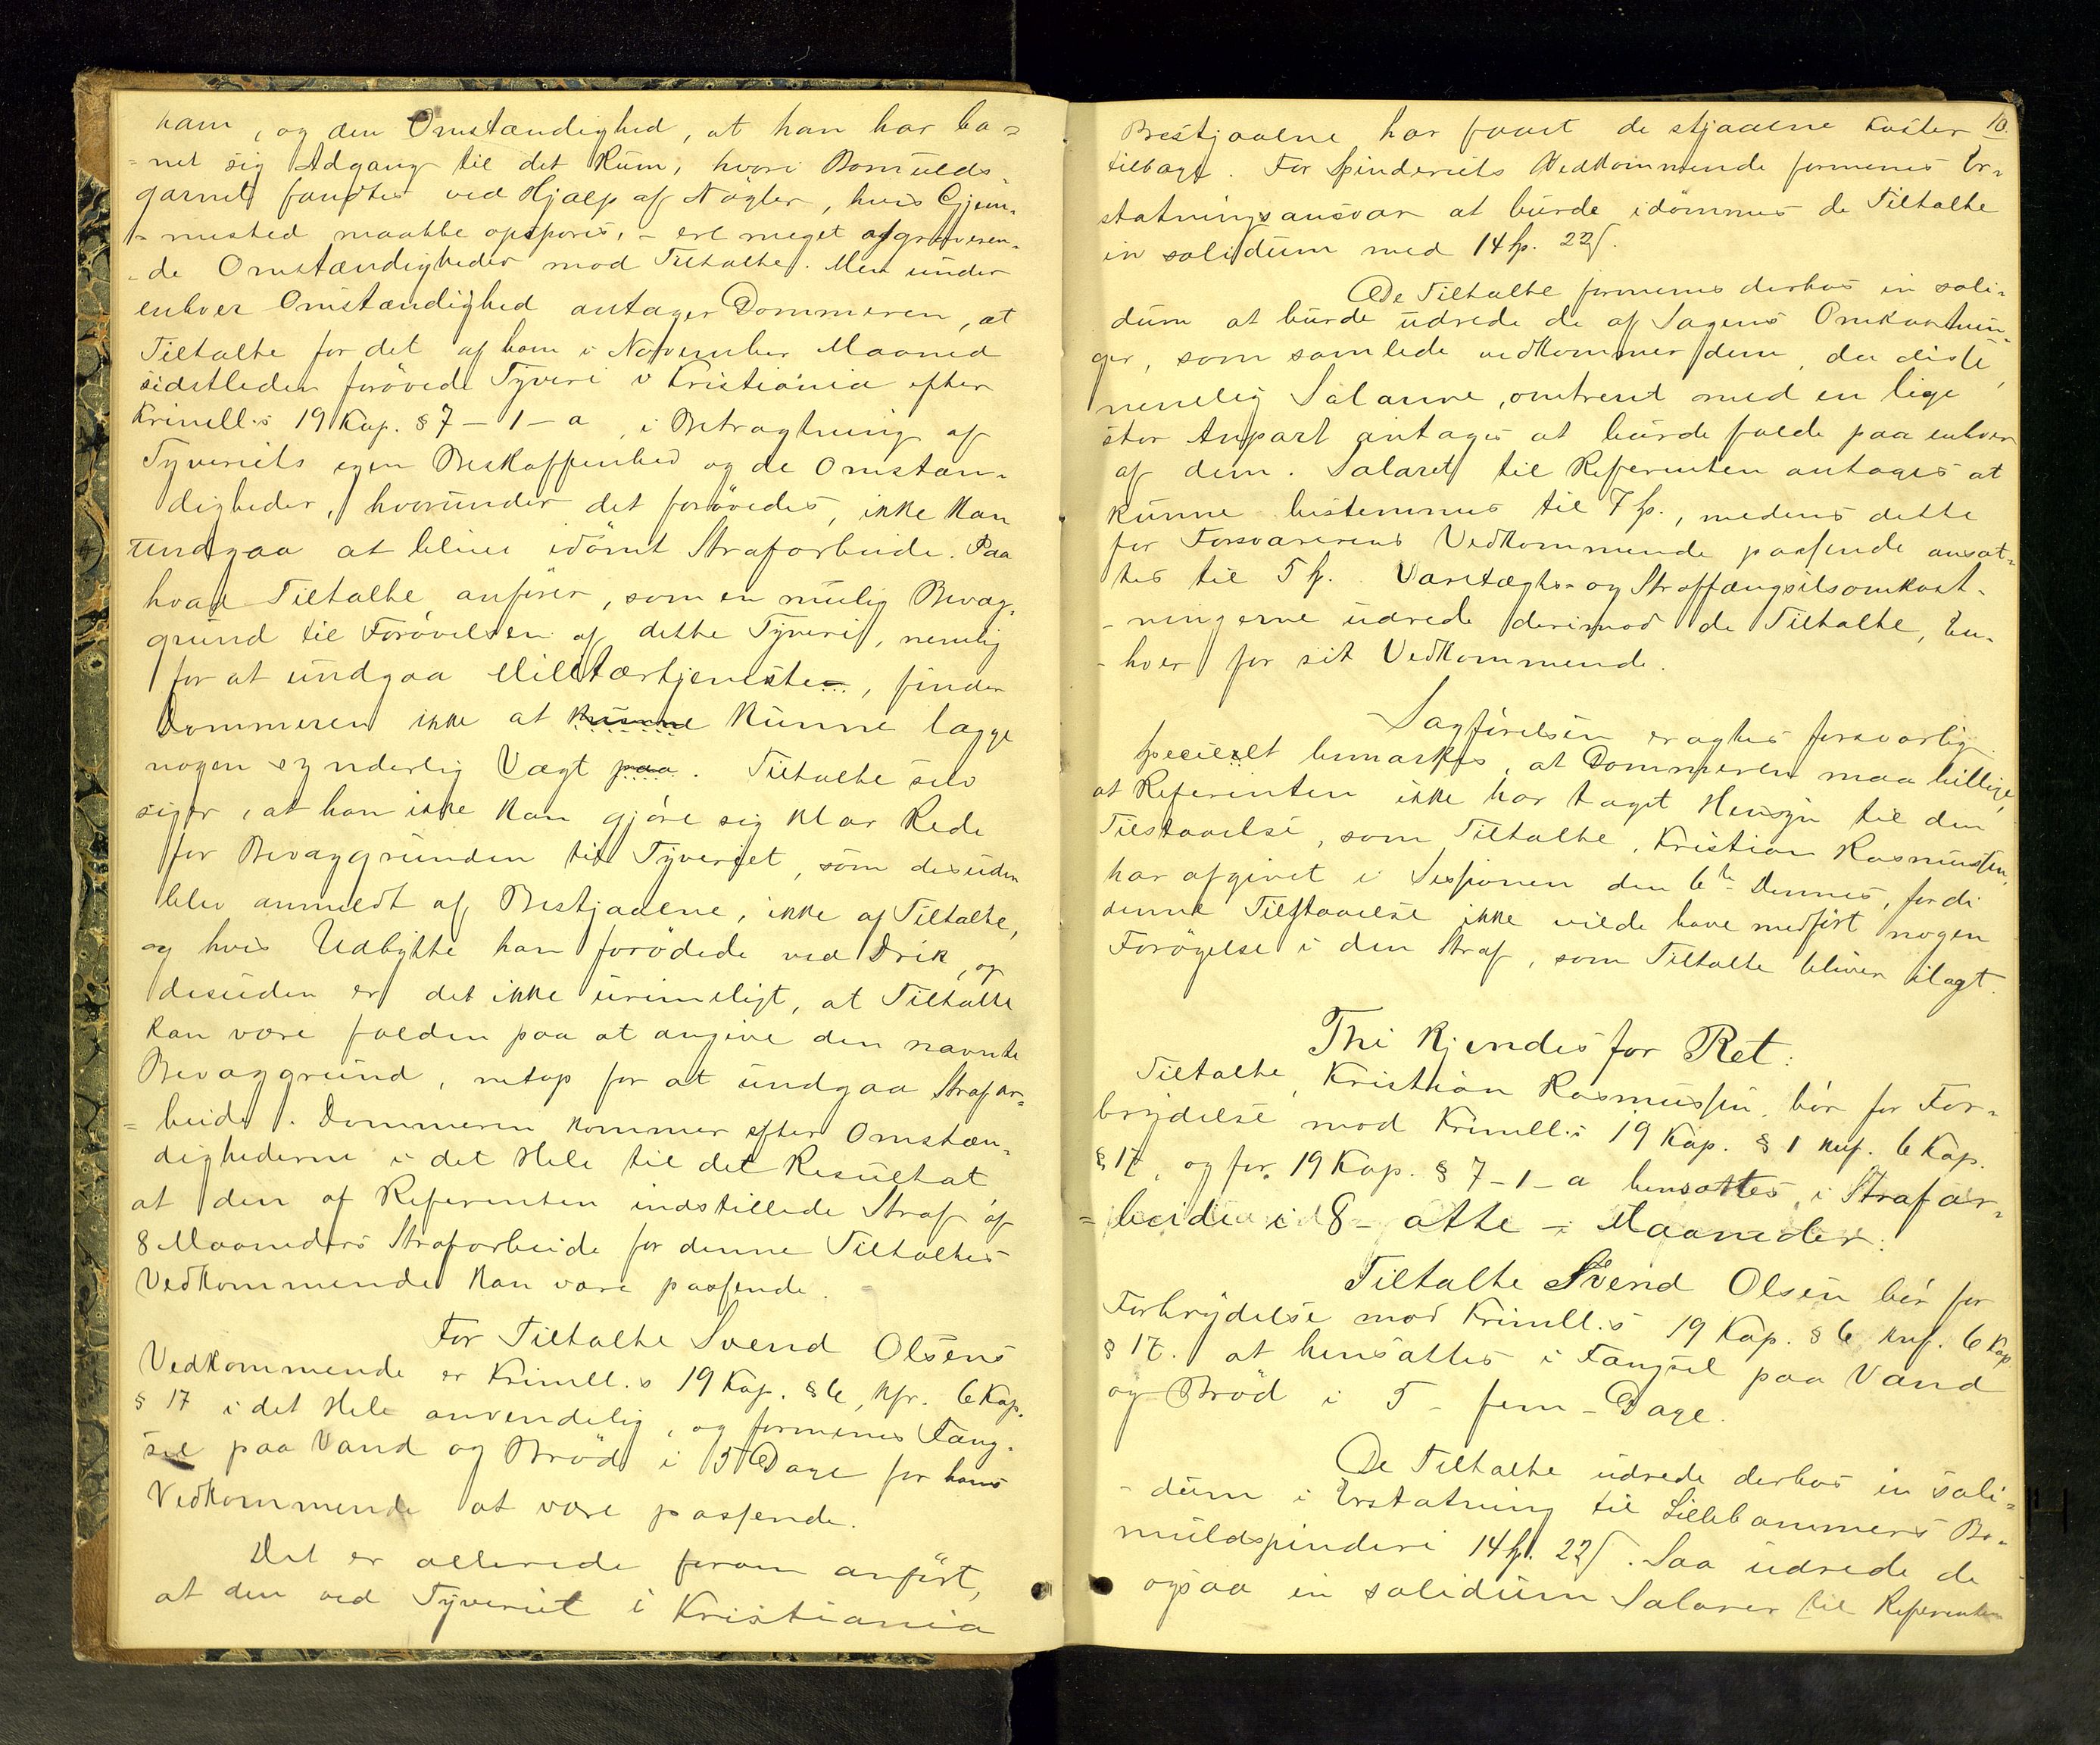 ham, og den Omstændighed, at han har ba=
=net sig Adgang til det Rum, hvori Bomulds-
garnet fandtes ved Hjælp af Nøgler, hvis Gjem-
-mested maatte opspores, - ere meget aggraveren-
-de Omstændigheder mod Tiltalte. Men under
enhver Omstændighed antager Dommeren, at
Tiltalte for det af ham i November Maaned
sidstleden forøvede Tyveri i Kristiania efter
Krimll.s 19 Kap. § 7 - 1 - a, i Betragtning af
Tyveriets egen Beskaffenhed og de Omstæn-
digheder, hvorunder det forøvedes, ikke kan
undgaa at blive idømt Strafarbeide. Paa
hvad Tiltalte anfører, som en mulig Bevæg-
grund til Forøvelsen af dette Tyveri, nemlig
for at undgaa Militærtjeneste, finder
Dommeren ikke at kunne kunne lægge
nogen synderlig Vægt paa. Tiltalte selv
siger, at han ikke kan gjøre sig klar Rede
for Bevæggrunden til Tyveriet, som desuden
blev anmeldt af Bestjaalne, ikke af Tiltalte,
og hvis Udbytte han forødede ved Drik, og
desuden er det ikke urimeligt, at Tiltalte
kan være falden paa at angive den nævnte
Bevæggrund, netop for at undgaa Strafar=
=beide. Dommeren kommer efter Omstæn-
dighederne i det Hele til det Resultat,
at den af Referenten indstillede Straf af
8 Maaneders Strafarbeide for denne Tiltaltes
Vedkommende kan være passende.
For Tiltalte Svend Olsens
Vedkommende er Krimll.s 19 Kap. § 6, kfr. 6 Kap.
§ 17 i det Hele anvendelig, og formenes Fæng-
sel paa Vand og Brød i 5 Dage for hans
Vedkommende at være passende.
Det er allerede foran anført,
at den ved Tyveriet i Kristiania
10.
Bestjaalne har faaet de stjaalne Koster
tilbage. For Spinderiets Vedkommende formenes Er-
statningsansvar at burde idømmes de Tiltalte
in solidum med 14 Sp. 22 s.
De Tiltalte formenes derhos in soli-
dum at burde udrede de af Sagens Omkostnin-
ger, som samlede vedkommer dem, da disse,
nemlig Salarerne, omtrent med en lige
stor Anpart antages at burde falde paa enhver
af dem. Salaret til Referenten antages at
kunne bestemmes til 7 Sp., medens dette
for Forsvarerens Vedkommende passende ansæt-
tes til 5 Sp. Varetægts- og Straffængselsomkost-
-ningerne udrede derimod de Tiltalte, En-
-hver for sit Vedkommende.
Sagførelsen eragtes forsvarlig.
Specielt bemærkes, at Dommeren maa billige,
at Referenten ikke har taget Hensyn til den
Tilstaaelse, som Tiltalte, Kristian Rasmussen,
har afgivet i Sessionen den 6te Dennes, fordi
denne Tilstaaelse ikke vilde have medført nogen
Forøgelse i den Straf, som Tiltalte bliver ilagt.
Thi kjendes for Ret:
Tiltalte, Kristian Rasmussen, bør for For-
brydelse mod Krimll.s 19 Kap. § 1 kuf. 6 Kap.
§ 17, og for 19 Kap. § 7 - 1 - a hensættes i Strafar-
=beide i 8 - otte - Maaneder.
Tiltalte Svend Olsen bør for
Forbrydelse mod Krimll.s 19 Kap. § 6 kuf. 6 Kap
§ 17. at hensættes i Fængsel paa Vand
og Brød i 5 - fem - Dage.
De Tiltalte udrede derhos in soli=
-dum i Erstatning til Lillehammers Bo-
muldspinderi 14 Sp. 22 s. Saa udrede de
ogsaa in solidum Salarer til Referenten